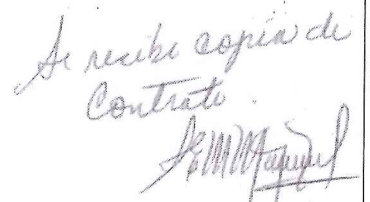 Se recibe copia de
Contrato.